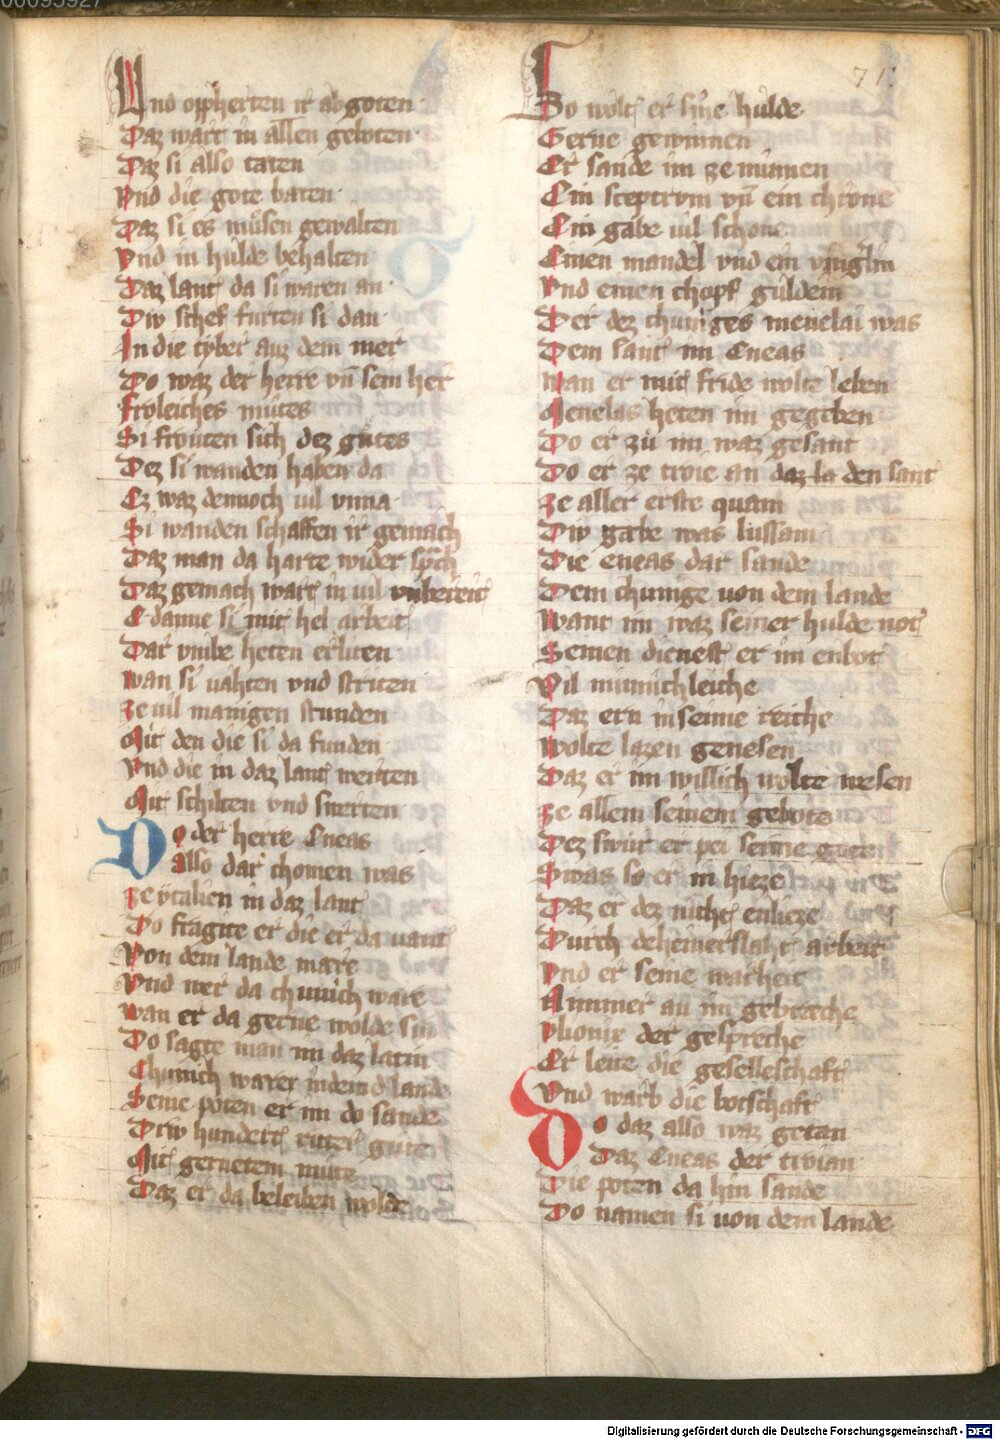 00095927
71.
Vnd oppherten ir abgoten
Daz wart in allen geboten
Daz si also taten
Vnd die gote baten
Daz si es müsen gewalten
Vnd in hulde behalten
Daz lant da si waren an
Div schef furten si dan
In die tyber auz dem mer
Do waz der herre vn̄ sein her
Froleiches mütes
Si frouten sich dez gütes
Dez si wanden haben da
Ez waz dennoch uil vnna
Si wanden schaffen ir gemach
Daz man da harte wider sprach
Daz gemach wart in uil vnbereit
E danne si mit hel arbeit
Dar vmbe heten erliten
wan si uahten vnd striten
ze uil manigen stunden
Mit den die si da funden
Vnd die in daz lant werten
Mit schilten vnd swerten
Do der herre Eneas
also dar chomen was
ze ytalien in daz lant
Do fragite er die er da uant
Von dem lande mare
Vnd wer da chunich ware
wan er da gerne wolde sin
Do sagte man im daz latin
Chunich warer in dem lande
Seine poten er im do sande
Driv hundert ritter gute
Mit gernetem mute
Daz er da beleiben wolde
So wolt er sine hulde
Gerne gewinnen
Er sande im ze minnen
Ein sceptrvm vn̄ ein chrone
Ein gabe uil schone
Einen mandel vnd ein vingerlin
Vnd einen chopf guldein
Der dez chuniges menelai was
Dem sant im Eneas
wan er mit fride wolte leben
Menelas heten im gegeben
Do er zü im waz gesant
Do er ze troie an daz la den sant
ze aller erste quam
Div gabe was lussam
Die eneas dar sande
Dem chunige uon dem lande
want im waz seiner hulde not
Seinen dienest er im enbot
Vil minnichleiche
Daz ern in seinne reiche
wolte lazen genesen
Daz er im willich wolte wesen
ze allem seinem gebote
Dez swur er pei seinne gote
Swas so er in hieze
Daz er dez nicht enlieze
Durch deheinerslaht arbeit
Vnd er seine warheit
Nimmer an im gebreche
Ylionix der gespreche
Er leue die geselleschaft
Vnd warb die botschaft
Do daz also waz getan
Daz Eneas der troian
Die poten da hin sande
Do namen si uon dem lande
Digitalisierung gefördert durch die Deutsche Forschungsgemeinschaft - DFG